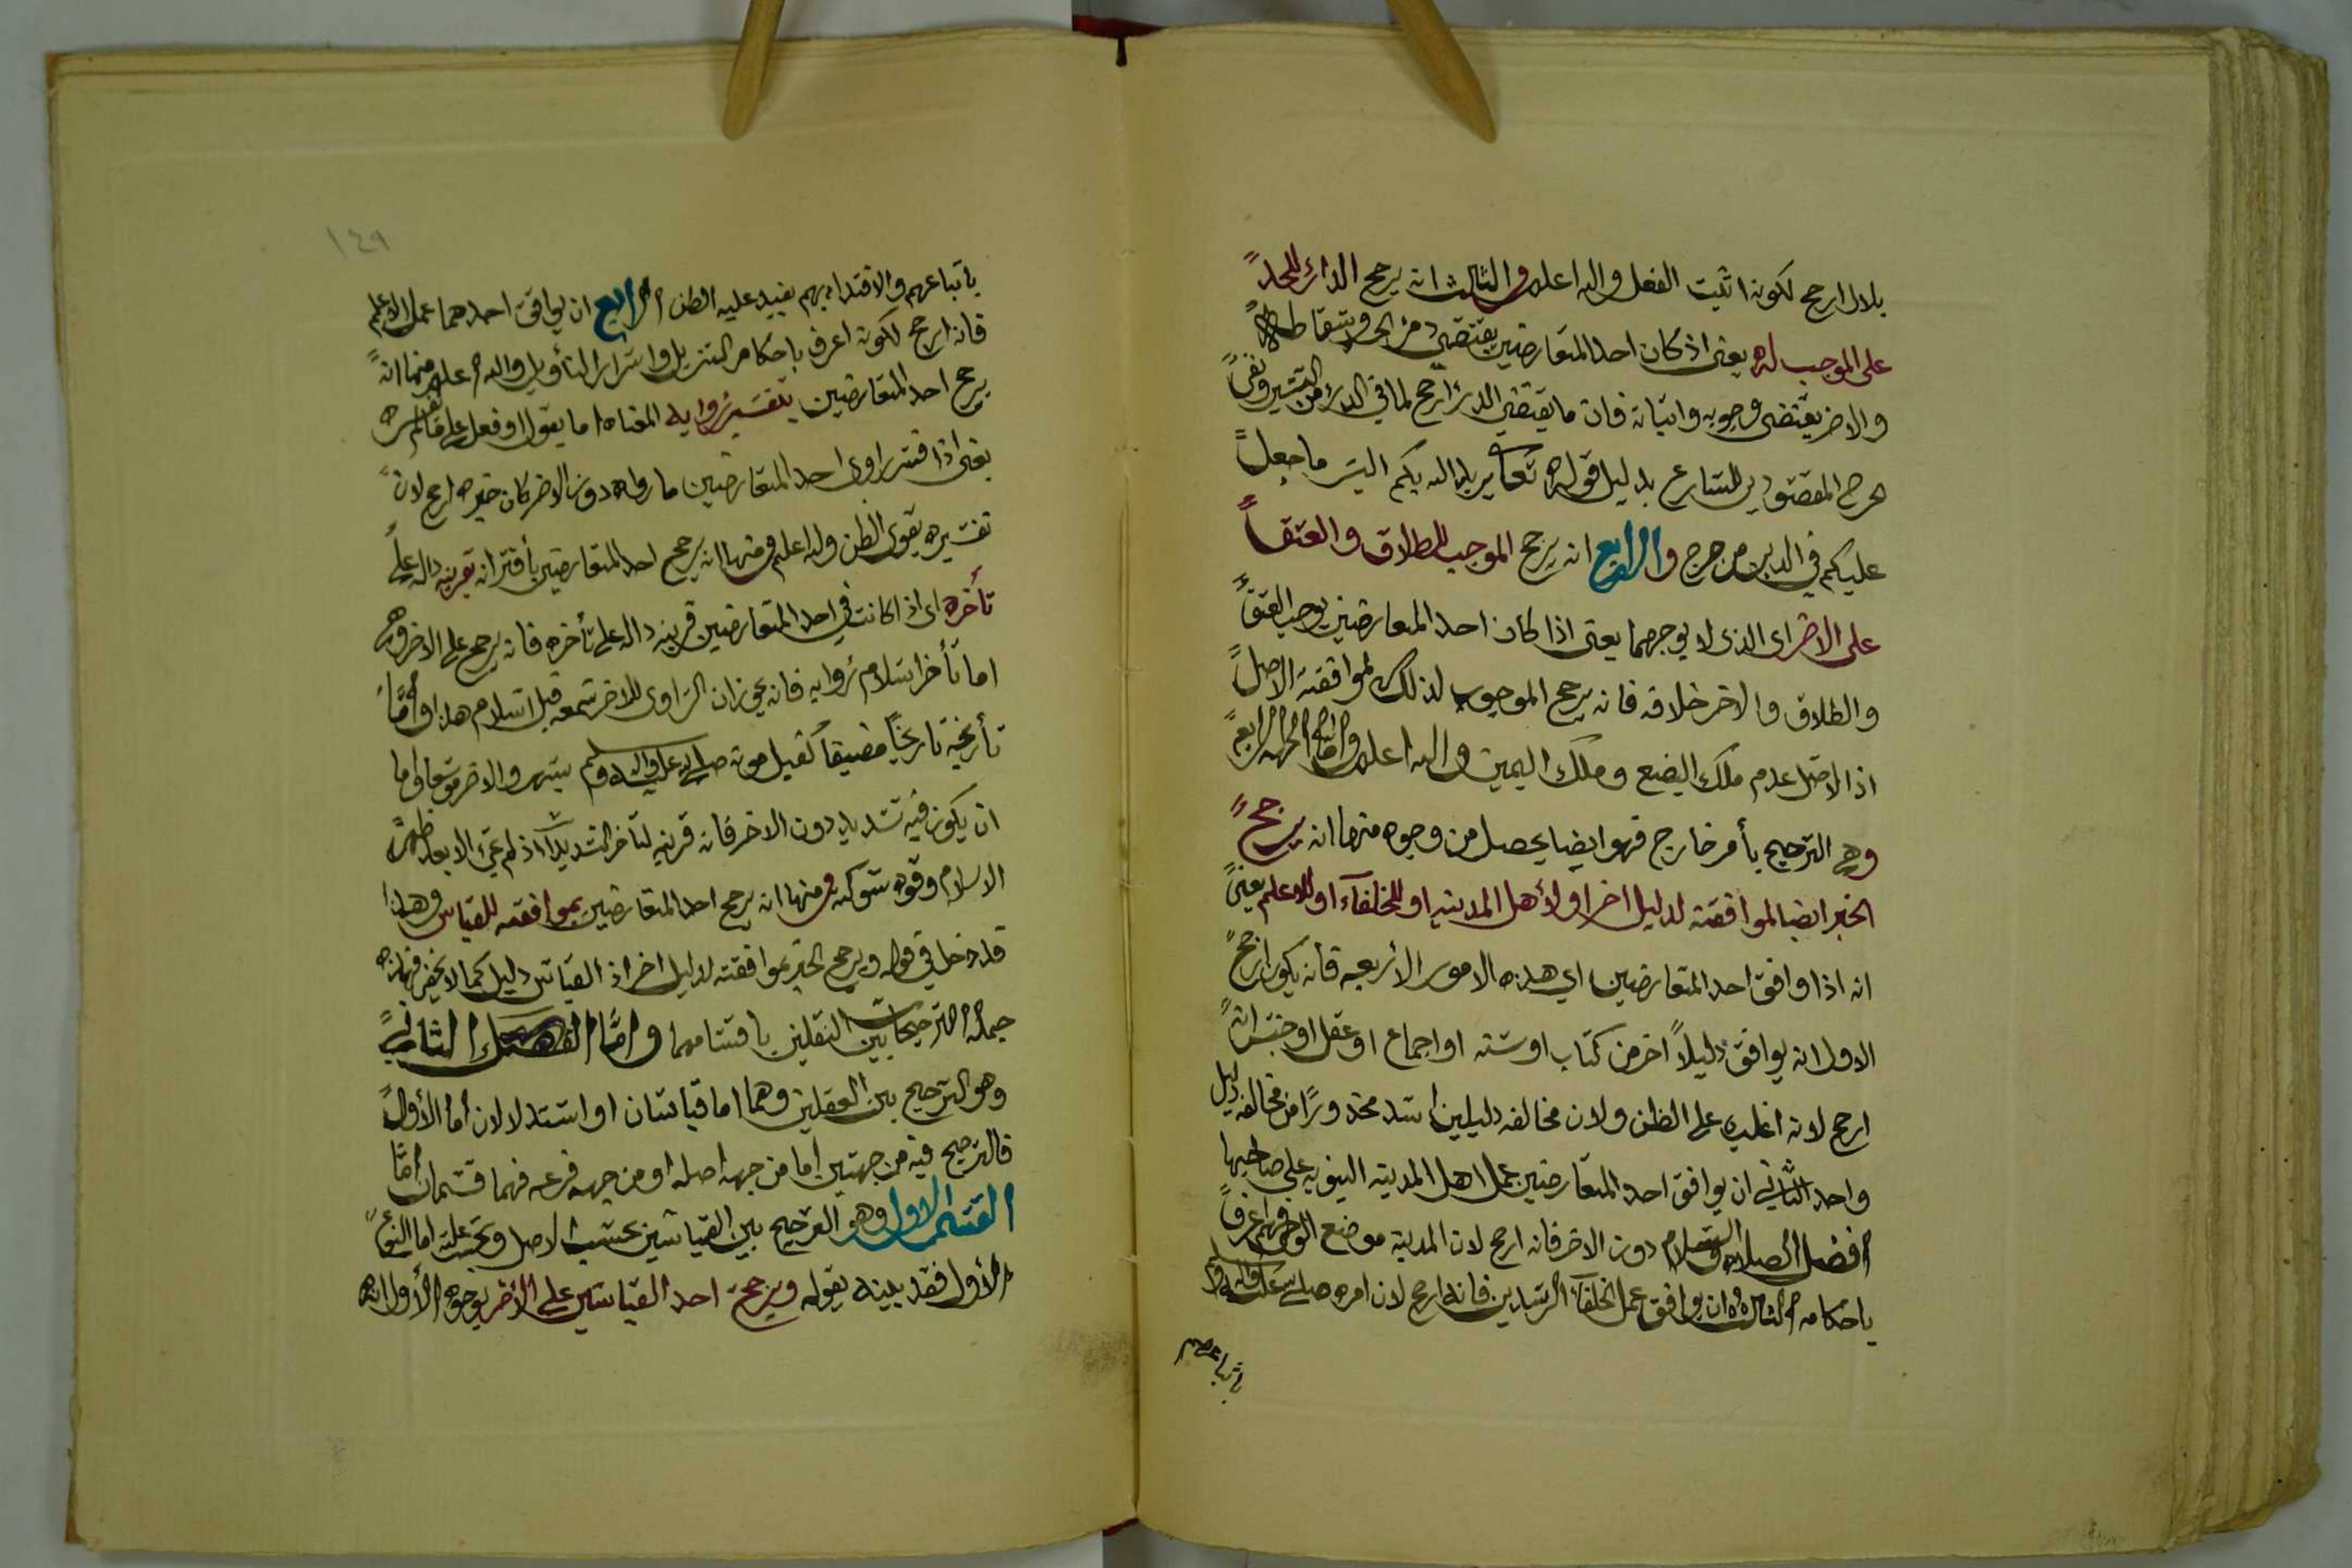 بلال ارجح لكونه اثبت الفعل والله اعلم والثالث انه يرجح الدارئ للحد
على الموجب له يعنى اذ كان احد المتعارضين يقتضى درء الحد واسقاطه
والاخر يقتضى وجوبه واثباته فان ما يقتضى الدرء ارجح لما فى الدرء من التيسير ونفى
الحرج المقصودين للشارع بدليل قوله تعالى يريد الله بكم اليسر ما جعل
عليكم فى الدين من حرج والرابع انه يرجح الموجب للطلاق والعتق
على الاخر اى الذى لا يوجبهما يعنى اذا كان احد المتعارضين يوجب العتق
والطلاق والاخر خلافه فانه يرجح الموجب لذلك لموافقته الاصل
اذ الاصل عدم ملك البضع وملك اليمين والله اعلم واما الجهة الرابعة
وهى الترجيح بأمر خارج فهو ايضا يحصل من وجوه منها انه يرجح
الخبر ايضا لموافقته لدليل اخر او لأهل المدينه او للخلفآء او للاعلم يعنى
انه اذا وافق احد المتعارضين اي هذه الامور الأربعه فانه يكون ارجح
الاول انه يوافق دليلاً اخر من كتاب او سنه او اجماع او عقل او حس انه
ارجح لانه اغلب على الظن ولان مخالفه دليلين اشد محذورًا من مخالفه دليل
واحد الثاني ان يوافق احد المتعارضين عمل اهل المدينه النبويه على صاحبها
افضل الصلاه والسلام دون الاخر فانه ارجح لان المدينه موضع الوحى فهم اعرف
باحكامه الثالث ان يوافق عمل الخلفآء الراشدين فانه ارجح لان امره صلى الله عليه واله وسلم
باتباعهم
١٤٩
باتباعهم والاقتداء بهم يفيد غلبه الظن الرابع ان يوافق احدهما عمل الاعلم
فانه ارجح لكونه اعرف باحكام التنزيل واسرار التأويل والله اعلم ومنها انه
يرجح احد المتعارضين بتفسير راويه المعناه اما بقول او فعل
يعنى اذا فسر راوى احد المتعارضين ما رواه دون الاخر كان خبره ارجح لان
تفسيره يقوى الظن والله اعلم ومنها انه يرجح احد المتعارضين بأقترانه بقرينه داله على
تأخره اى اذا كانت فى احد المتعارضين قرينه داله على تأخره فانه يرجح على الاخر وهى
اما تأخر اسلام راويه فانه يجوز ان الراوى للاخر سمعه قبل اسلام هذا واما
تأريخه تاريخاً مضيقاً كقبل موته صلى الله عليه واله وسلم بشهر والاخر موسعا واما
ان يكون فيه تشديد دون الاخر فانه قرينه لتأخر التشديد اذ لم يجئ الا بعد ظهور
الاسلام وقوه شوكته ومنها انه يرجح احد المتعارضين بموافقه للقياس وهذا
قد دخل في قوله ويرجح الخبر بموافقته لدليل اخر اذ القياس دليل كما لا يخفى فهذه
جملة الترجيحات بين النقلين باقسامهما واما الفصل الثاني
وهو الترجيح بين العقلين وهما اما قياسان او استدلالان أما الأول
فالترجيح فيه من جهتين اما من جهه اصله او من جهه فرعه فهما قسمان أما
القسم الاول وهو الترجيح بين القياسين بحسب الاصل وبحسب علته اما النوع
الأول فقد بينه بقوله ويرجح احد القياسين على الأخر بوجوه الأول انه